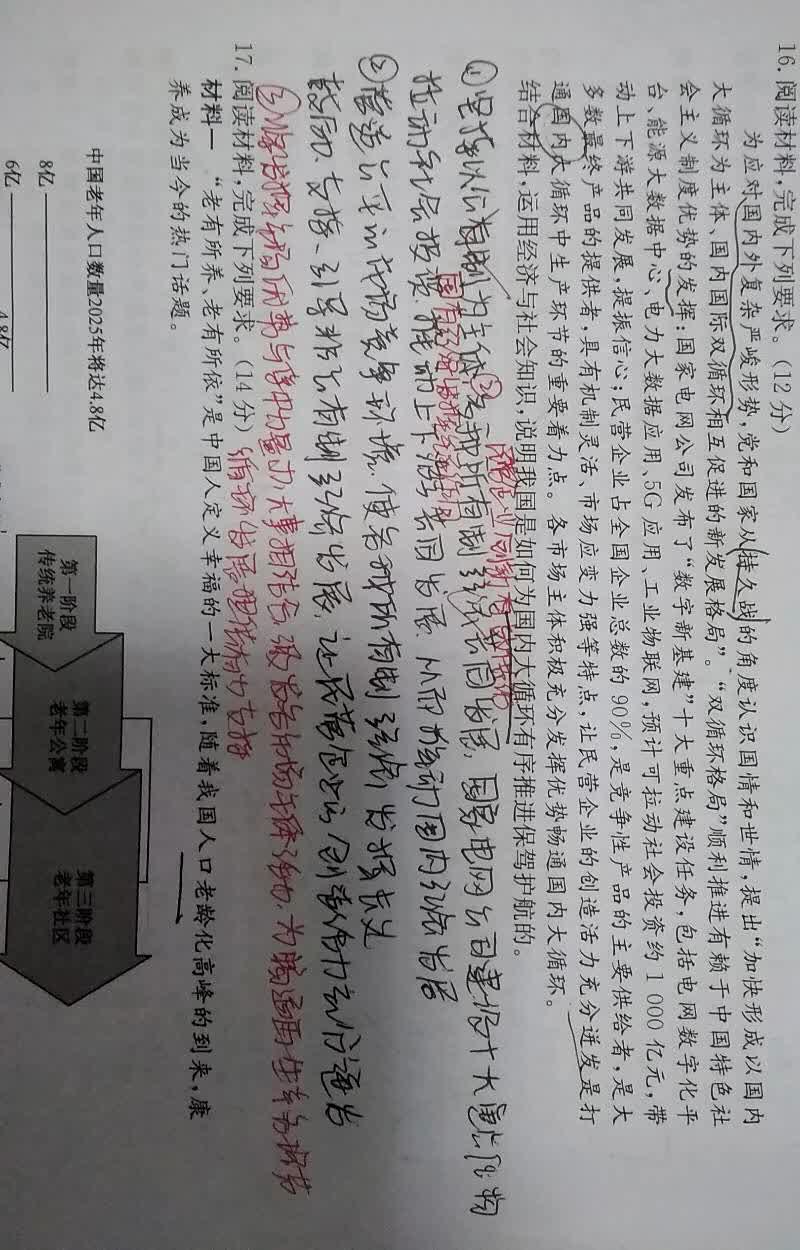 16. 阅读材料,完成下列要求。(12分)
为应对国内外复杂严峻形势,党和国家从持久战的角度认识国情和世情,提出“加快形成以国内
大循环为主体、国内国际双循环相互促进的新发展格局”。“双循环格局”顺利推进有赖于中国特色社
会主义制度优势的发挥:国家电网公司发布了“数字新基建”十大重点建设任务,包括电网数字化平
台、能源大数据中心、电力大数据应用、5G应用、工业物联网,预计可拉动社会投资约1 000亿元,带
动上下游共同发展,提振信心;民营企业占全国企业总数的90%,是竞争性产品的主要供给者,是大
多数最终产品的提供者,具有机制灵活、市场应变力强等特点,让民营企业的创造活力充分迸发是打
通国内大循环中生产环节的重要着力点。各市场主体积极充分发挥优势畅通国内大循环。
结合材料,运用经济与社会知识,说明我国是如何为国内大循环有序推进保驾护航的。
①坚持以公有制为主体,②多种所有制经济共同发展,国家电网公司建设十大重点任务
国有经济发挥主导作用
拉动社会投资,推动上下游共同发展,从而推动国内经济发展
②营造公平的市场竞争环境,使各种所有制经济发挥长处
鼓励、支持、引导非公有制经济发展,让民营企业创造活力充分迸发
③将发挥市场优势与集中力量办大事相结合,激发各市场主体活力,为畅通生产各环节
循环发展提供有力支持
17. 阅读材料,完成下列要求。(14分)
材料一 “老有所养、老有所依”是中国人定义幸福的一大标准,随着我国人口老龄化高峰的到来,康
养成为当今的热门话题。
中国老年人口数量2025年将达4.8亿
8亿
6亿
4.8亿
第一阶段
传统养老院
第二阶段
老年公寓
第三阶段
老年社区